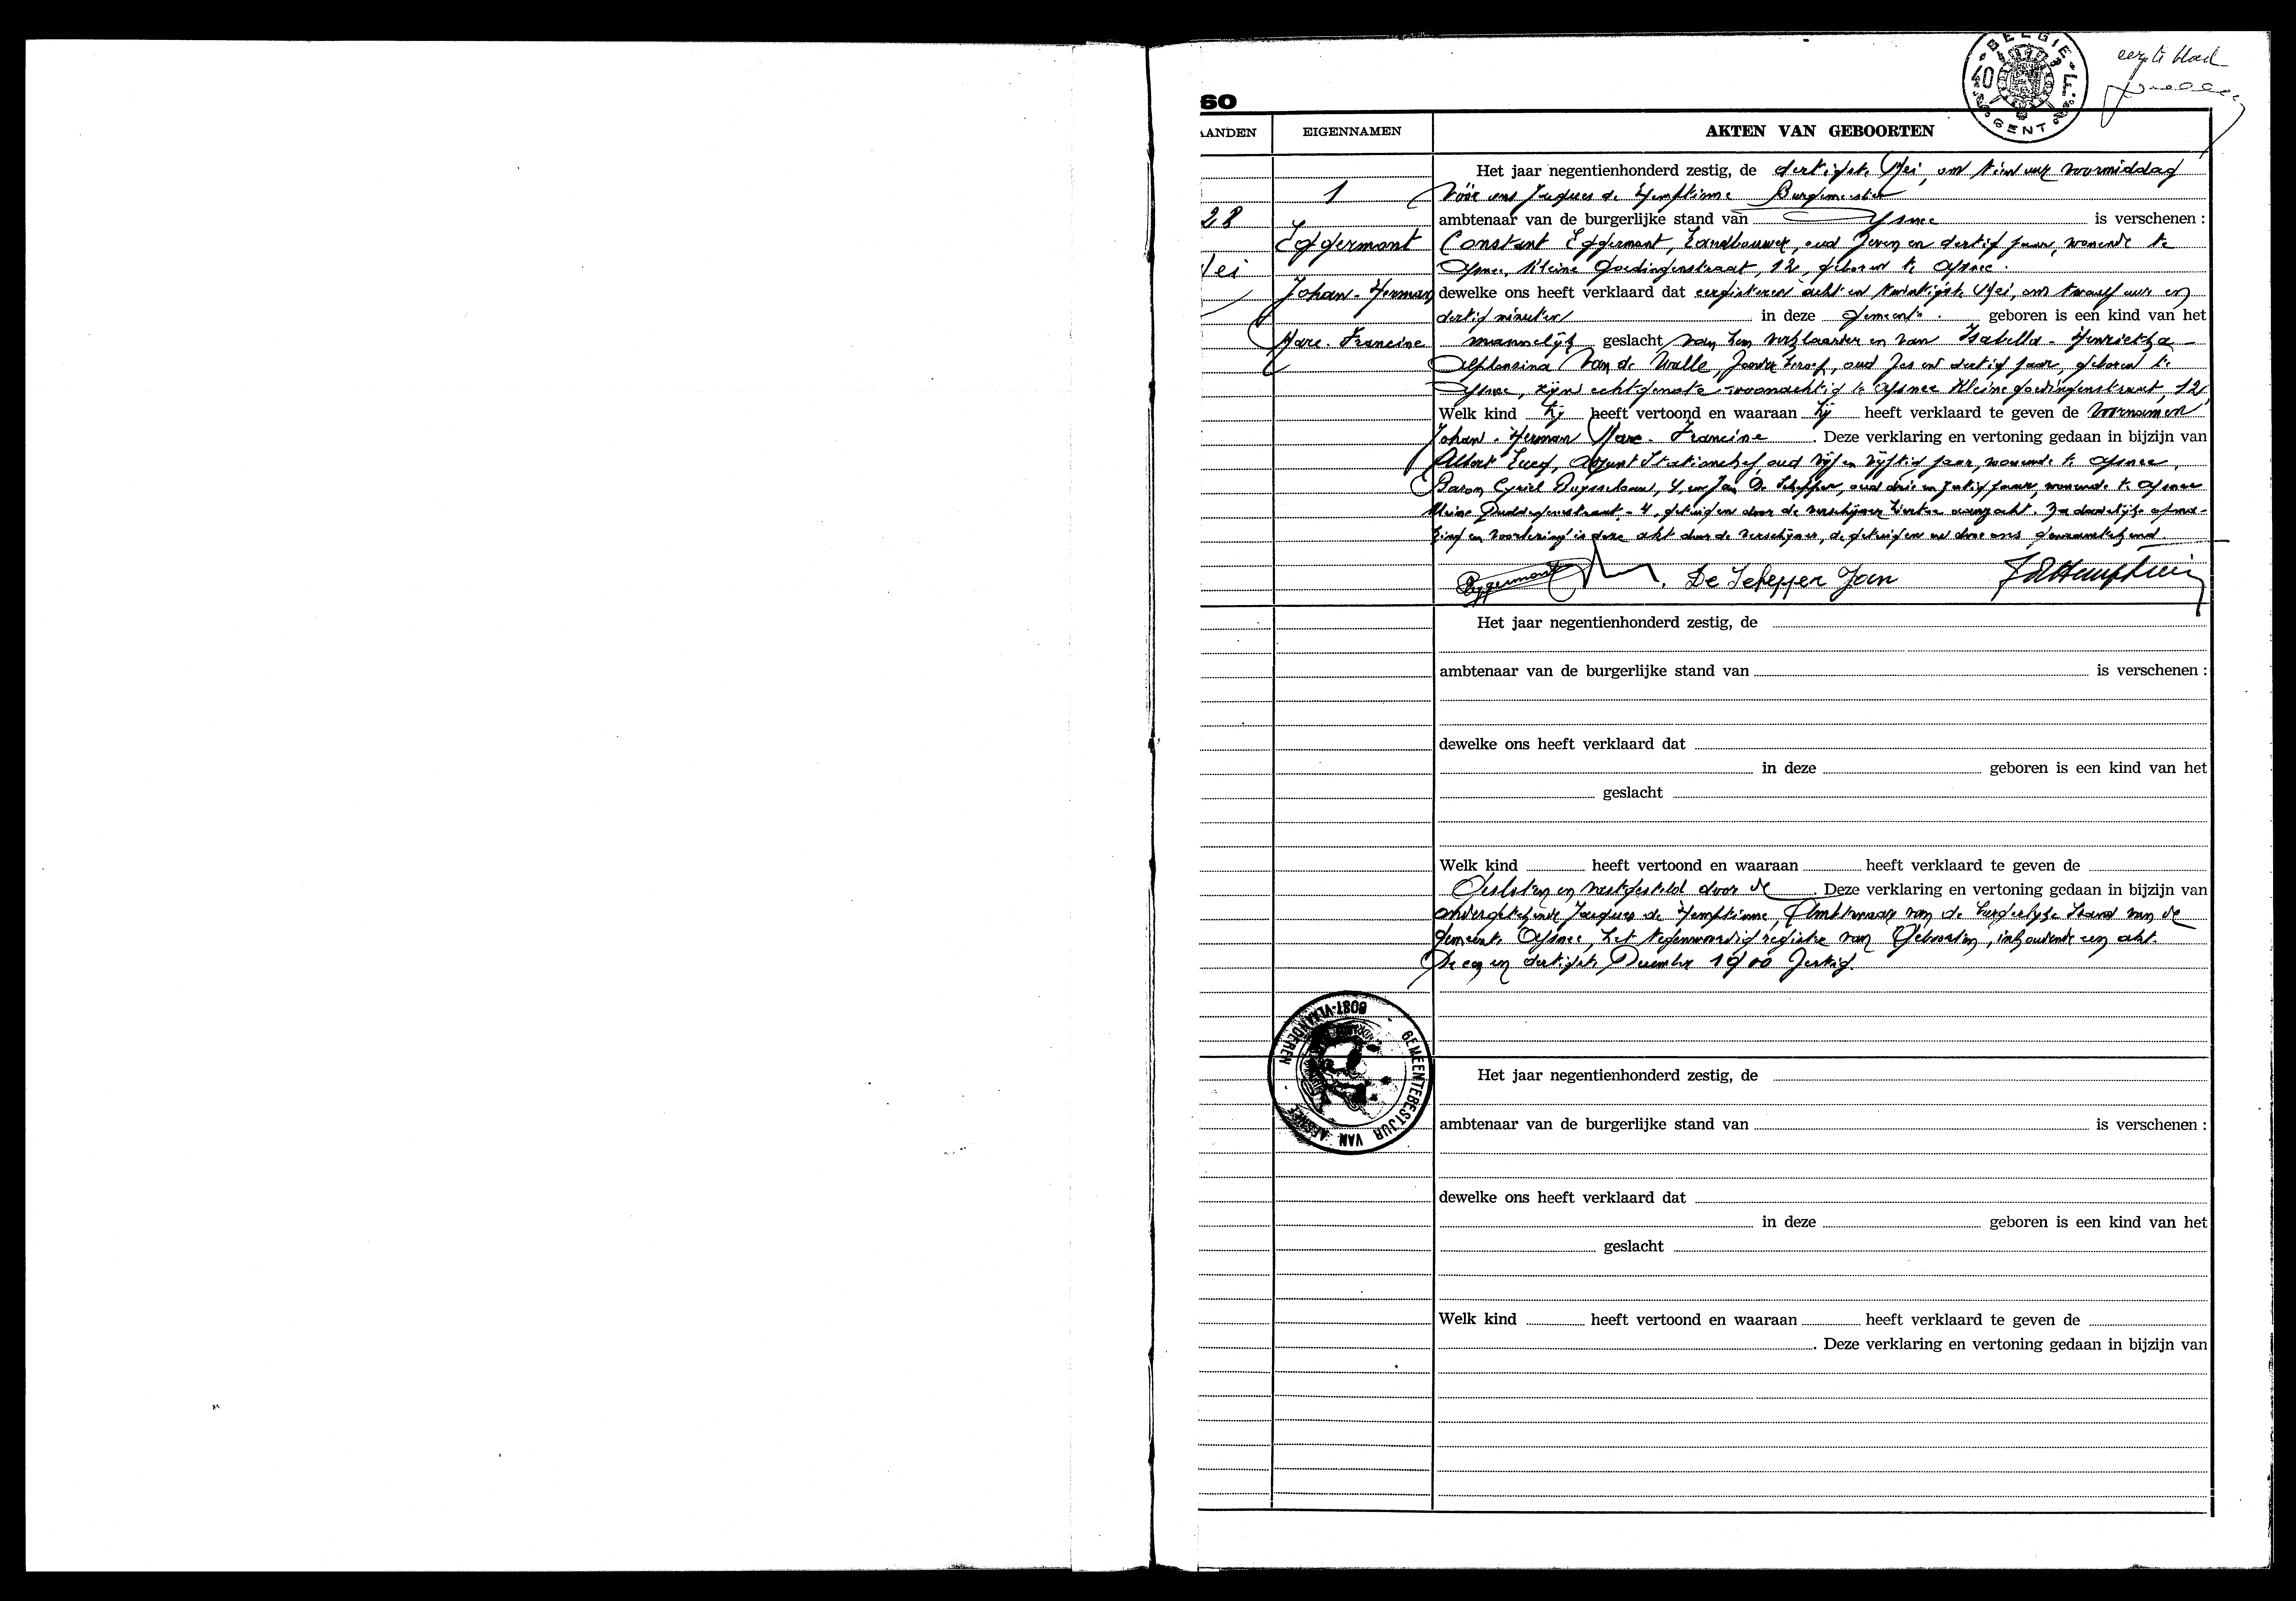 eerste blad
BELGIE
40
GENT
60
AANDEN
EIGENNAMEN
AKTEN VAN GEBOORTEN
28
Mei
1
Eggermont
Johan - Herman
Marc - Francine
Het jaar negentienhonderd zestig, de dertigste Mei, om tien uur voormiddag
Vóór ons Jacques de Hemptinne Burgemeester
ambtenaar van de burgerlijke stand van Afsnee is verschenen :
Constant Eggermont, Landbouwer, oud zeven en dertig jaar, wonende te
Afsnee, Kleine Goedingenstraat, 12, geboren te Afsnee.
dewelke ons heeft verklaard dat eergisteren acht en twintigste Mei, om twaalf uur en
dertig minuten in deze gemeente. geboren is een kind van het
mannelijk geslacht van hem verklaarder en van Isabella - Henrietha -
Alphonsina Van de Walle, zonder beroep, oud zes en dertig jaar, geboren te
Afsnee, zijne echtgenote woonachtig te Afsnee Kleine goedingenstraat, 12,
Welk kind hij heeft vertoond en waaraan hij heeft verklaard te geven de voornamen
Johan - Herman Marc - Francine . Deze verklaring en vertoning gedaan in bijzijn van
Albert, Adjunt Stationchef, oud vijf en vijftig jaar, wonende te Afsnee,
Baron Cyriel Buyssestraat, 4, en Jan De Schepper, oud drie en zestig jaar, wonende te Afsnee
Kleine - 4, getuigen door de verschijner hiertoe aangezocht. Na dadelijke opma-
king en voorlezing is deze akt door de verschijner, de getuigen en door ons
Eggermont De Schepper Jan J d Hemptinne
Het jaar negentienhonderd zestig, de
ambtenaar van de burgerlijke stand van is verschenen :
dewelke ons heeft verklaard dat
in deze geboren is een kind van het
geslacht
Welk kind heeft vertoond en waaraan heeft verklaard te geven de
Gesloten en vastgesteld door de . Deze verklaring en vertoning gedaan in bijzijn van
ondergetekende Jacques de Hemptinne, Ambtenaar van de burgerlijke stand van de
gemeente Afsnee, het tegenwoordig register van Geboorten, inhoudende een akt.
De een en dertigste December 1900 zestig.
GEMEENTEBESTUUR VAN AFSNEE
OOST-VLAANDEREN
Het jaar negentienhonderd zestig, de
ambtenaar van de burgerlijke stand van is verschenen :
dewelke ons heeft verklaard dat
in deze geboren is een kind van het
geslacht
Welk kind heeft vertoond en waaraan heeft verklaard te geven de
. Deze verklaring en vertoning gedaan in bijzijn van